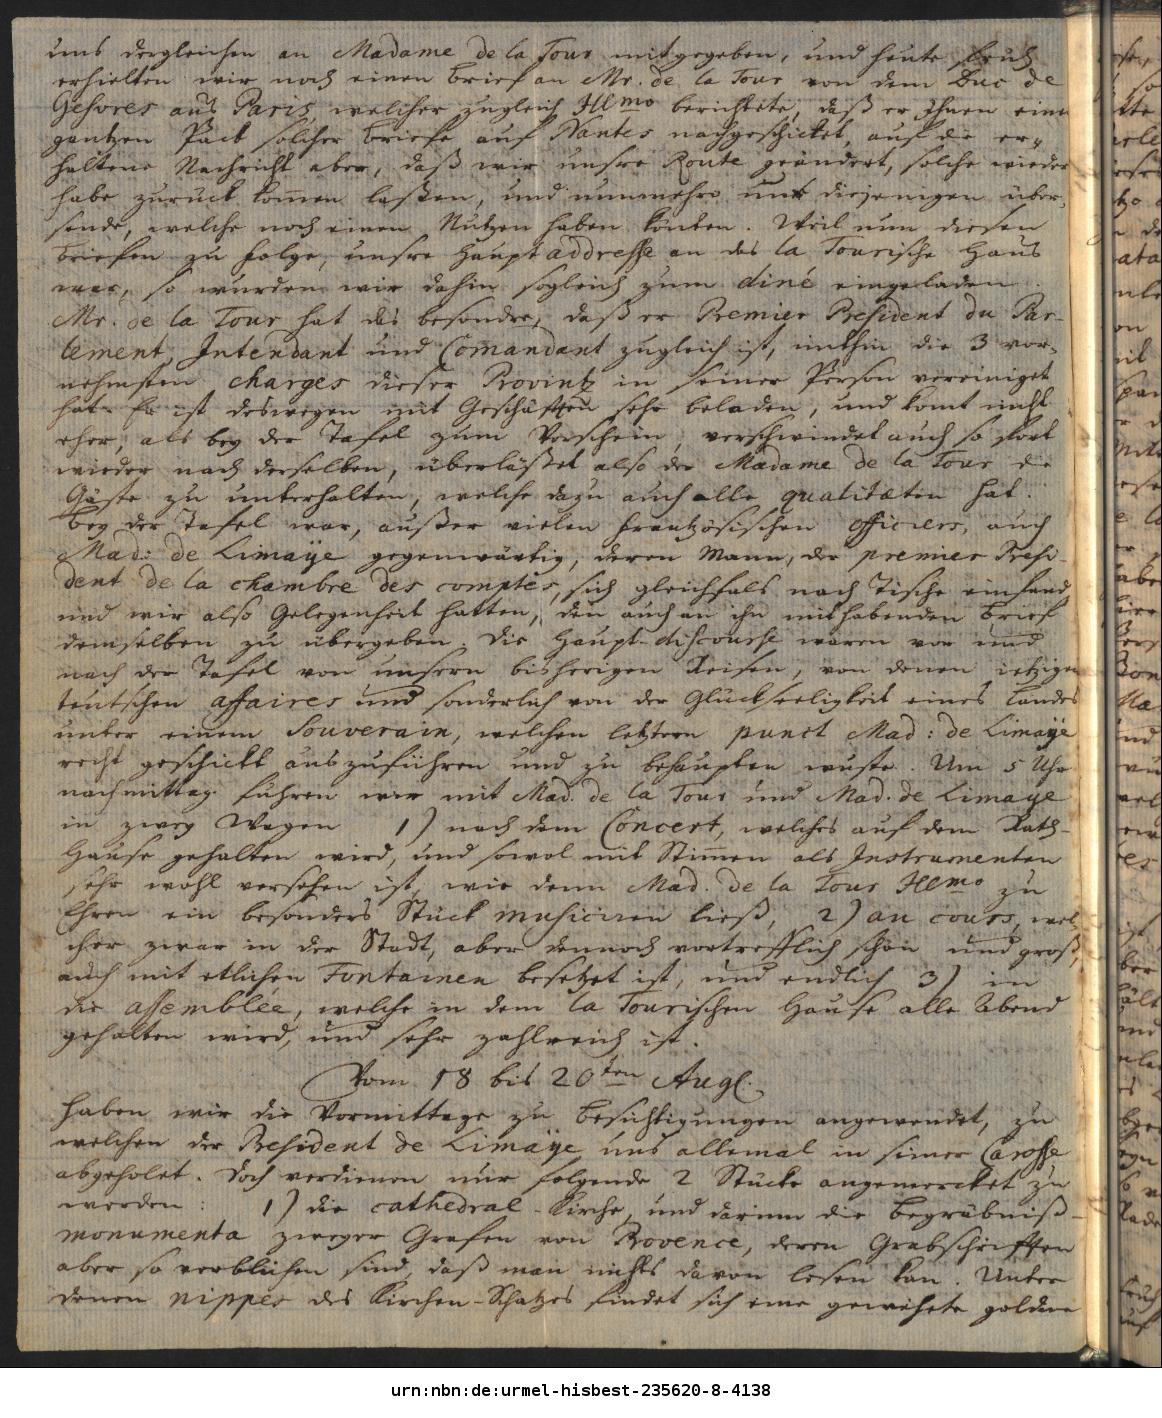 uns dergleichen an Madame de la Tour mitgegeben, und heute fruh
erhielten wir noch einen brief an Mr. de la Tour von dem Duc de
Gesvres aus Paris, welcher zugleich Illmo berichtete, daß er Ihnen eine
gantzen Pack solcher briefe auf Nantes nachgeschicket, auf die er„
haltene Nachricht aber, daß wir unsre Route geändert, solche wieder
habe zurück kom̄en laßen, und nunmehro uns diejenigen über„
sende, welche noch einen Nutzen haben könten. Weil nun diesen
briefen zu folge, unsre Haupt addresse an das la Tourische Haus
war, so wurden wir dahin sogleich zum diné eingeladen.
Mr. de la Tour hat das besondre, daß er Premier President du Par-
lement, Intendant und Com̄andant zugleich ist, mithin die 3 vor„
nehmsten charges dieser Provintz in seiner Person vereiniget
hat. Er ist deswegen mit Geschäfften sehr beladen, und komt nicht
eher, als bey der Tafel zum Vorschein, verschwindet auch so fort
wieder nach derselben, überläßet also der Madame de la Tour die
Gäste zu unterhalten, welche dazu auch alle qualitæten hat.
Bey der Tafel war, außer vielen frantzösischen officiers, auch
Mad: de Limaÿe gegenwärtig, deren Mann, der premier Presi-
dent de la chambre des comptes, sich gleichfals nach Tische einfand,
und wir also Gelegenheit hatten, den auch an ihn mithabenden brief
demselben zu übergeben. Die Haupt-discourse waren vor und
nach der Tafel von unsern bisherigen Reisen, von denen ietzigen
teutschen affaires und sonderlich von der Glückseeligkeit eines Landes
unter einem Souverain, welchen letztern punct Mad: de Limaÿe
recht geschickt auszuführen und zu behaupten wuste. Um 5 Uhr
nachmittag fuhren wir mit Mad. de la Tour und Mad. de Limaÿe
in zwey Wagen 1) nach dem Concert, welches auf dem Rath-
Hause gehalten wird, und sowol mit Stim̄en als Instrumenten
sehr wohl versehen ist, wie denn Mad. de la Tour Illmo zu
Ehren ein besonders Stück musiciren ließ, 2) au cours, wel-
cher zwar in der Stadt, aber dennoch vortrefflich schön und groß,
auch mit etlichen Fontainen besetzet ist, und endlich 3) in
die assemblée, welche in dem la Tourischen Hause alle Abend
gehalten wird, und sehr zahlreich ist.
Vom 18 bis 20ten Aug.
haben wir die Vormittage zu besichtigungen angewendet, zu
welchen der President de Limaÿe uns allemal in seiner Carosse
abgeholet. Doch verdienen nur folgende 2 Stücke angemercket zu
werden: 1) die cathedral-Kirche, und darinn die begräbniß-
monumenta zweyer Grafen von Provence, deren Grabschrifften
aber so verblichen sind, daß man nichts davon lesen kan. Unter
denen nippes des Kirchen-Schatzes findet sich eine geweihete goldne
urn:nbn:de:urmel-hisbest-235620-8-4138